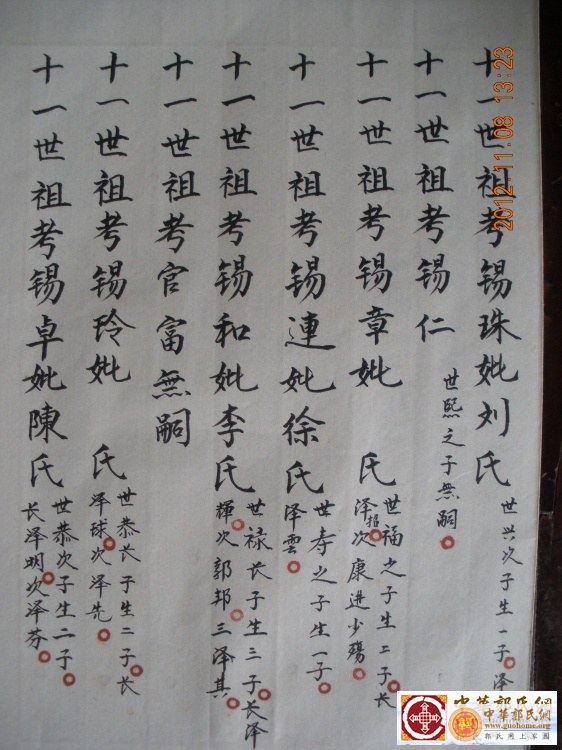 十一世祖考锡珠妣刘氏
世兴次子生一子泽
十一世祖考锡仁
世熙之子無嗣
十一世祖考锡章妣 氏
世福之子生二子长
泽招次康进少殇
十一世祖考锡連妣徐氏
世寿之子生一子
泽雲
十一世祖考锡和妣李氏
世禄长子生三子长泽
輝次郭邦三泽其
十一世祖考官富無嗣
十一世祖考锡玲妣 氏
世恭长子生二子长
泽球次泽先
十一世祖考锡卓妣陳氏
世恭次子生二子
长泽明次泽芬
2012.11.08 13:23
中華郭氏網
中華郭氏網
www.guohome.org
郭氏网上家园